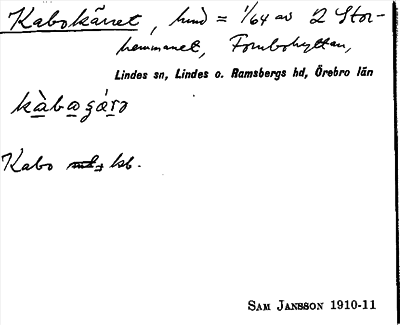 Kabokärret, hmd = 1/64 av 2 Stor-
hemmanet, Fornbohyttan,
Lindes sn, Lindes o. Ramsbergs hd, Örebro län
Kabo kb.
SAM JANSSON 1910-11